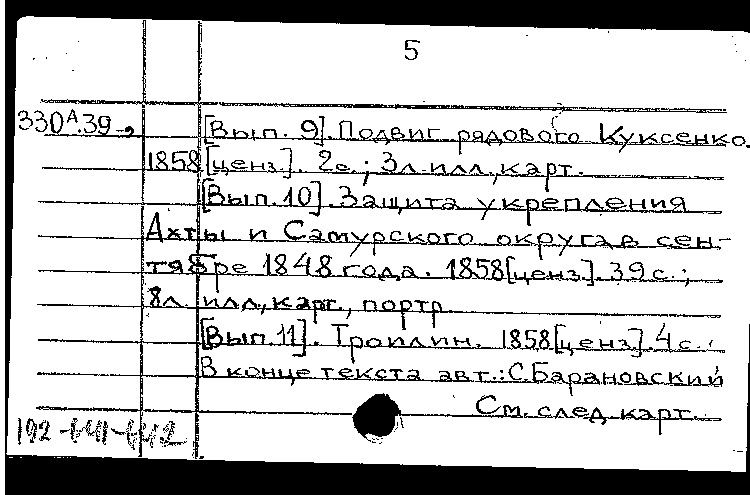 5
330А.39-, [Вып. 9]. Подвиг рядового Куксенко.
1858 [ценз.]. 2с.; 3л. илл., карт.
[Вып. 10]. Защита укрепления
Ахты и Самурского округа в сен-
тябре 1848 года. 1858 [ценз.]. 39 с.;
8л. илл., карт., портр.
[Вып. 11]. Трошлин. 1858 [ценз.]. 4 с.
В конце текста авт.: С. Барановский
См. след. карт.
192-641-642